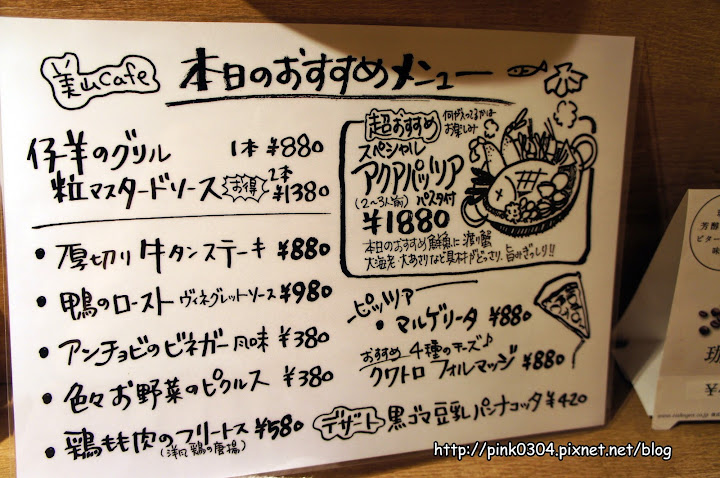 美山cafe
本日のおすすめメニュー
仔羊のグリル 1本 ¥880
粒マスタードソース お得 2本 ¥1380
・厚切り牛タンステーキ ¥880
・鴨のロースト ヴィネグレットソース ¥980
・アンチョビのビネガー風味 ¥380
・色々お野菜のピクルス ¥380
・鶏もも肉のフリートス ¥580
(洋風鶏の唐揚)
超おすすめ
何が入ってるかはお楽しみ
スペシャル
アクアパッツァ
(2~3人前) パスタ付
¥1880
本日のおすすめ鮮魚に渡り蟹
大海老・大あさりなど具材がどっさり、旨みぎっしり!!
ピッツァ
・マルゲリータ ¥880
おすすめ 4種のチーズ♪
クワトロフォルマッジ ¥880
デザート 黒ゴマ豆乳パンナコッタ ¥420
芳醇
ビター
味
¥
http://pink0304.pixnet.net/blog